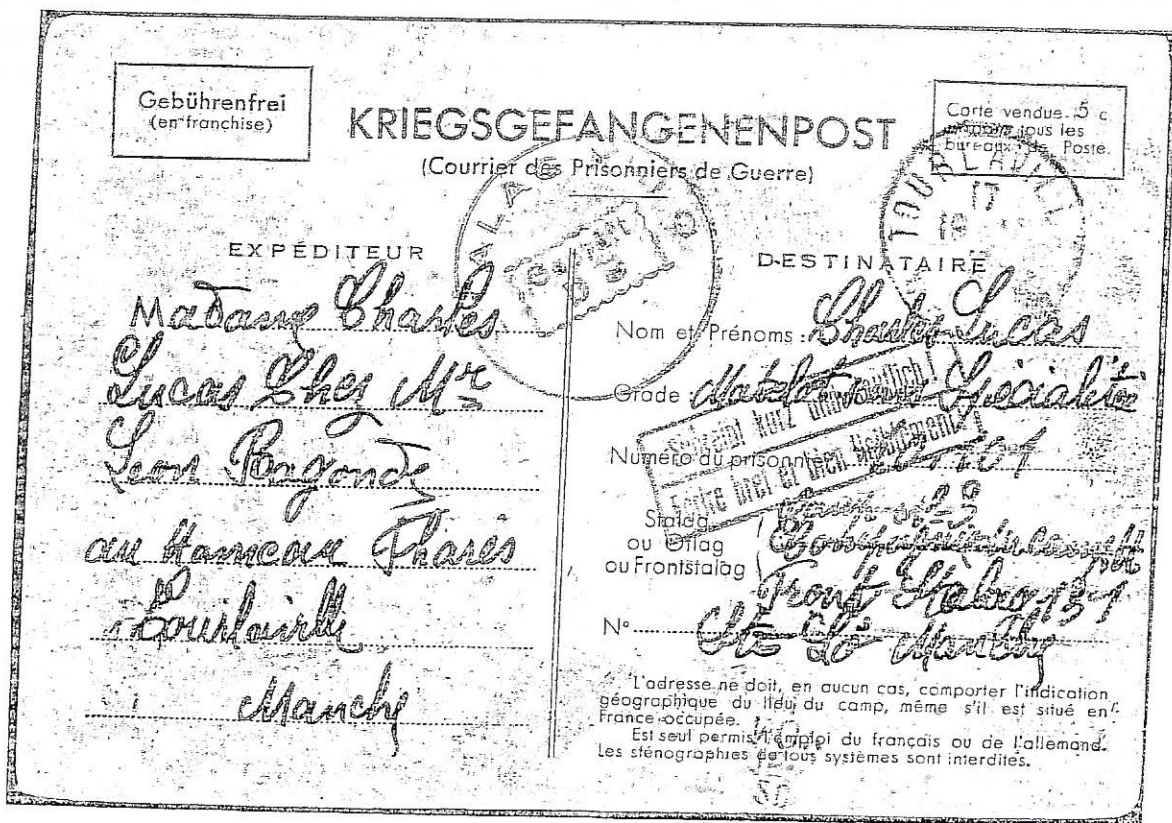 Gebührenfrei
(en franchise)
KRIEGSGEFANGENENPOST
(Courrier des Prisonniers de Guerre)
Carte vendue 5 c
tous les
bureaux de Poste.
TOURLAVILLE
17
EXPÉDITEUR
Madame Charles
Lucas Chez Mr
Leon
au Hameau Phares
Tourlaville
Manche
DESTINATAIRE
Nom et Prénoms : Charles Lucas
Grade Matelot Spécialité
Schreibt kurz und deutlich!
Ecrire bref et bien lisiblement
Numéro du prisonnier
Stalag
ou Oflag
ou Frontstalag
Front Stalag 131
N° St Lô Manche
L'adresse ne doit, en aucun cas, comporter l'indication
géographique du lieu du camp, même s'il est situé en
France occupée.
Est seul permis l'emploi du français ou de l'allemand.
Les sténographies de tous systèmes sont interdites.